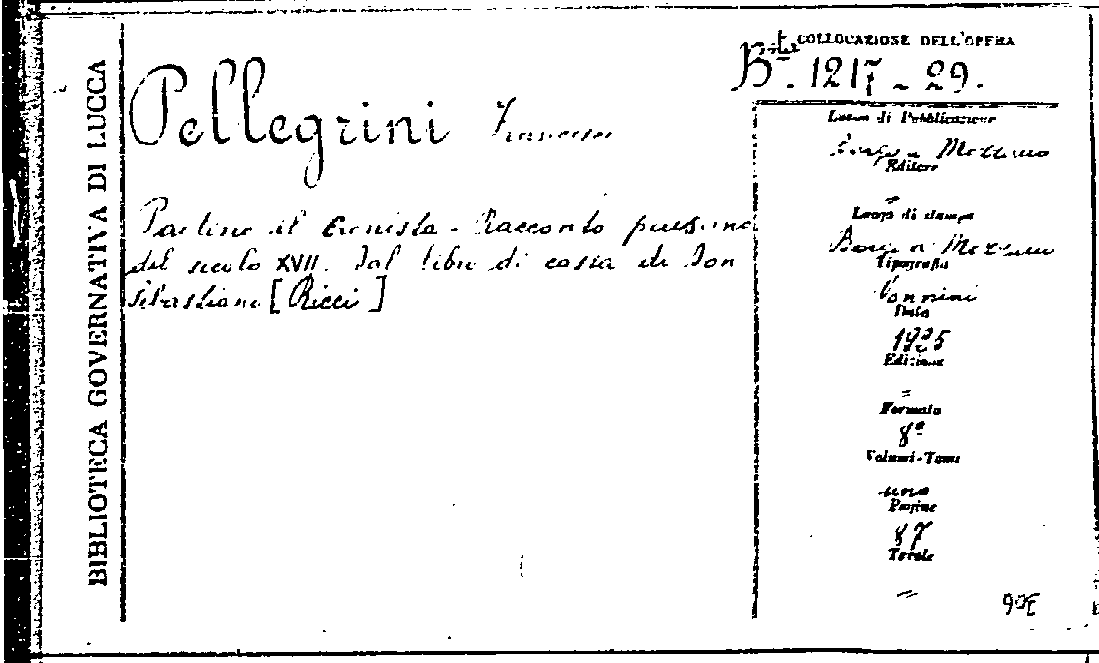 BIBLIOTECA GOVERNATIVA DI LUCCA
COLLOCAZIONE DELL'OPERA
Bta. 1217 - 29.
Pellegrini Francesco
Paolino il cronista - Racconto
del secolo XVII. Dal libro di casa di Don
Sebastiano [Ricci]
Luogo di Pubblicazione
Borgo a Mozzano
Editore
=
Luogo di stampa
Borgo a Mozzano
Tipografia
Vannini
Data
1925
Edizione
=
Formato
8º
Volumi-Tomi
uno
Pagine
87
Tavole
=